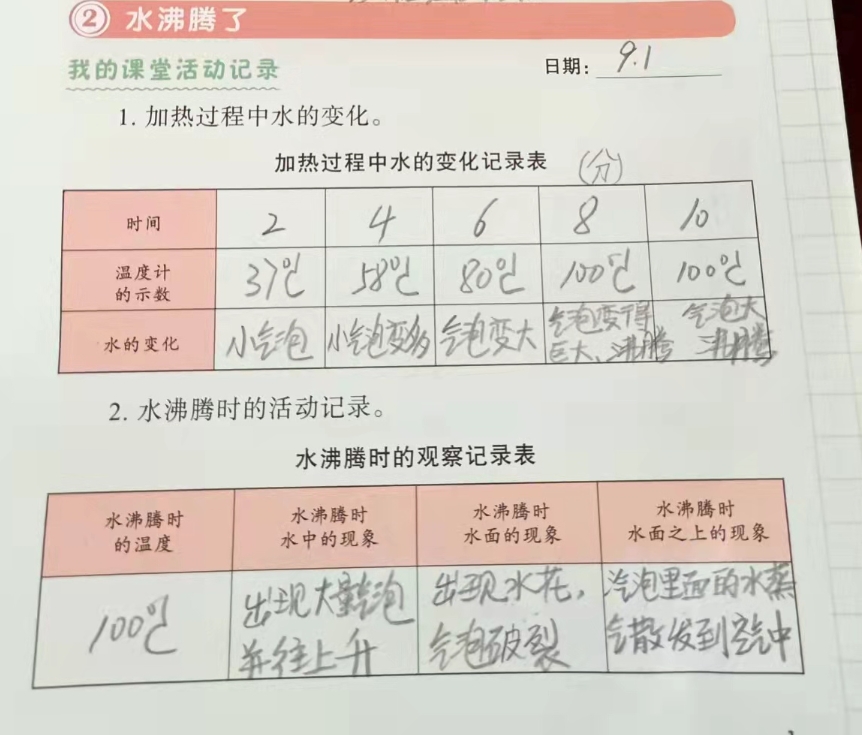 ② 水沸腾了
我的课堂活动记录 日期: 9.1
1. 加热过程中水的变化。
加热过程中水的变化记录表 (分)
时间 2 4 6 8 10
温度计的示数 37℃ 58℃ 80℃ 100℃ 100℃
水的变化 小气泡 小气泡变多 气泡变大 气泡变得巨大、沸腾 气泡大沸腾
2. 水沸腾时的活动记录。
水沸腾时的观察记录表
水沸腾时的温度 水沸腾时水中的现象 水沸腾时水面的现象 水沸腾时水面之上的现象
100℃ 出现大量气泡并往上升 出现水花,气泡破裂 汽泡里面的水蒸气散发到空气中